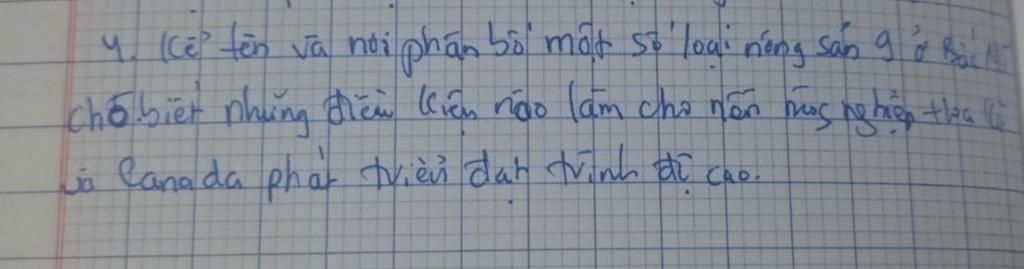 4. Kể tên và nơi phân bố một số loại nông sản ở Bắc
cho biết những điều kiện nào làm cho nền nông nghiệp Hoa Kì
và Canada phát triển đạt trình độ cao.